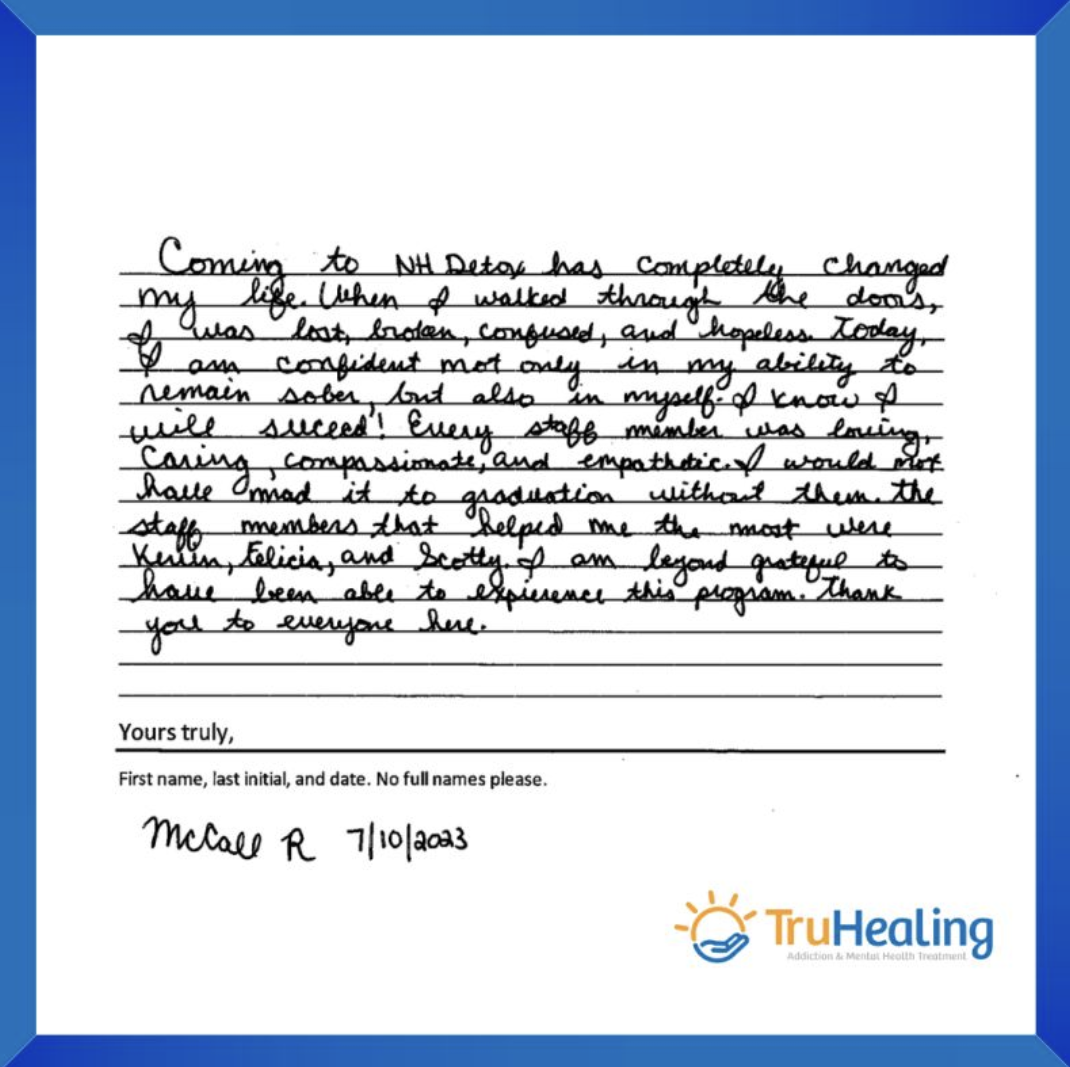 Coming to NH Detox has completely changed
my life. When I walked through the doors,
I was lost, broken, confused, and hopeless. Today,
I am confident not only in my ability to
remain sober, but also in myself. I know I
will suceed! Every staff member was loving,
Caring, compassionate, and empathetic. I would not
have mad it to graduation without them. The
staff members that helped me the most were
Kevin, Felicia, and Scotty. I am beyond grateful to
have been able to expierence this program. Thank
you to everyone here.
Yours truly,
First name, last initial, and date. No full names please.
McCall R 7/10/2023
TruHealing
Addiction & Mental Health Treatment